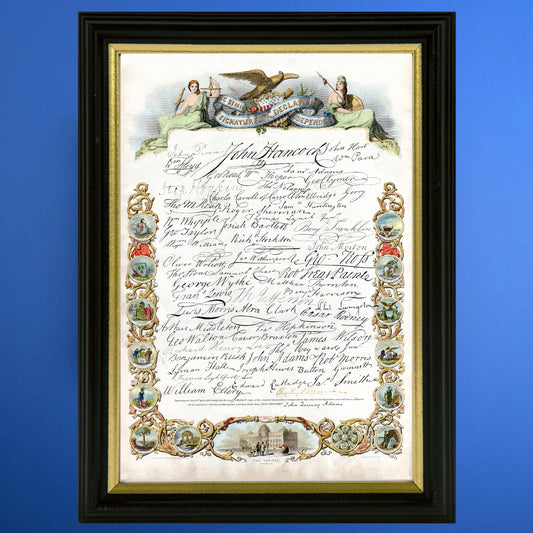 SIGNATURES DECLARA
INDEPEND
John Penn John Hancock John Hart
Wm Floyd Wm Paca
Wm Hooper Saml Adams
Geo Clymer
Step Hopkins
Charles Carroll of Carrollton Elbridge Gerry
Tho M:Kean Roger Sherman Saml Huntington
Wm Whipple Thomas Lynch Junr
Geo Taylor Josiah Bartlett Benj Franklin
Wm Williams Richd Stockton
John Morton
Oliver Wolcott Jno Witherspoon Geo Ross
Thos Stone Samuel Chase Robt Treat Paine
George Wythe Matthew Thornton
Frans Lewis Th Jefferson Benj Harrison
Lewis Morris Abra Clark Caesar Rodney
Arthur Middleton Fras Hopkinson
Geo Walton Carter Braxton James Wilson
Richard Henry Lee Thos Heyward Junr
Benjamin Rush John Adams Robt Morris
Lyman Hall Joseph Hewes Button Gwinnett
Francis Lightfoot Lee
William Ellery Edward Rutledge Jas Smith
John Quincy Adams
THE CAPITOL